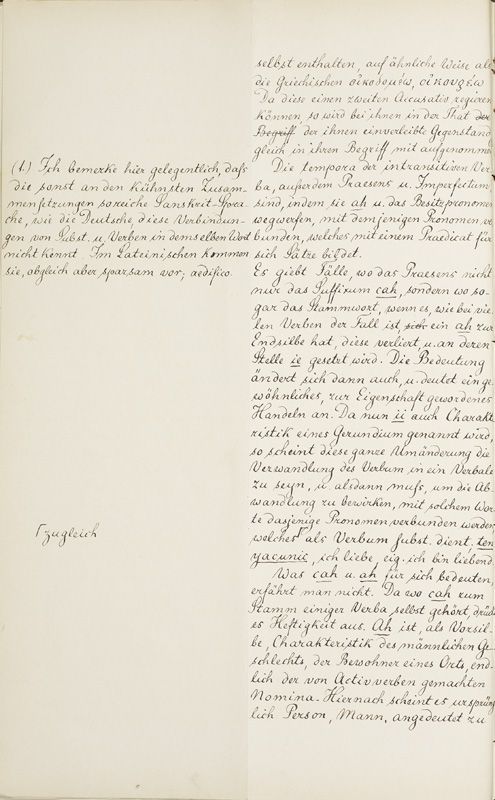 (1.) Ich bemerke hier gelegentlich, daß
die sonst an den kühnsten Zusam-
mensetzungen so reiche Sanskrit-Spra-
che, wie die Deutsche, diese Verbindun-
gen von Subst. u. Verben in demselben Wort
nicht kennt. Im Lateinischen kommen
sie, obgleich aber sparsam vor; aedifico.
⌈zugleich
selbst enthalten, auf ähnliche Weise als
die Griechischen οἰκοδομέω, οἰκουρέω
Da diese einen zweiten Accusativ regieren
können, so wird bei ihnen in der That der
Begriff der ihnen einverleibte Gegenstand
gleich in ihren Begriff mit aufgenommen
Die tempora der intransitiven Ver
ba, außerdem Praesens u. Imperfectum
sind, indem sie ah u. das Besitzpronomen
wegwerfen, mit demjenigen Pronomen ve
bunden, welches mit einem Praedicat für
sich Sätze bildet.
Es giebt Fälle, wo das Praesens nicht
nur das Suffixum cah, sondern wo so-
gar das Stammwort, wenn es, wie bei vie-
len Verben der Fall ist, sich ein ah zur
Endsilbe hat, diese verliert, u. an deren
Stelle ie gesetzt wird. Die Bedeutung
ändert sich dann auch, u. deutet ein ge
wöhnliches, zur Eigenschaft gewordenes
Handeln an. Da nun ii auch Charakte
ristik eines Gerundium genannt wird,
so scheint diese ganze Umänderung die
Verwandlung des Verbum in ein Verbale
zu seyn, u. alsdann muß, um die Ab-
wandlung zu bewirken, mit solchem Wor
te dasjenige Pronomen verbunden werden,
welches⌈ als Verbum subst. dient, ten
yacunic, ich liebe, eig. ich bin liebend.
Was cah u. ah für sich bedeuten,
erfährt man nicht. Da wo cah zum
Stamm einiger Verba selbst gehört, drückt
es Heftigkeit aus. Ah ist, als Vorsil-
be, Charakteristik des männlichen Ge-
schlechts, der Bewohner eines Orts, end-
lich der von Activverben gemachten
Nomina. Hiernach scheint es ursprüng
lich Person, Mann, angedeutet zu